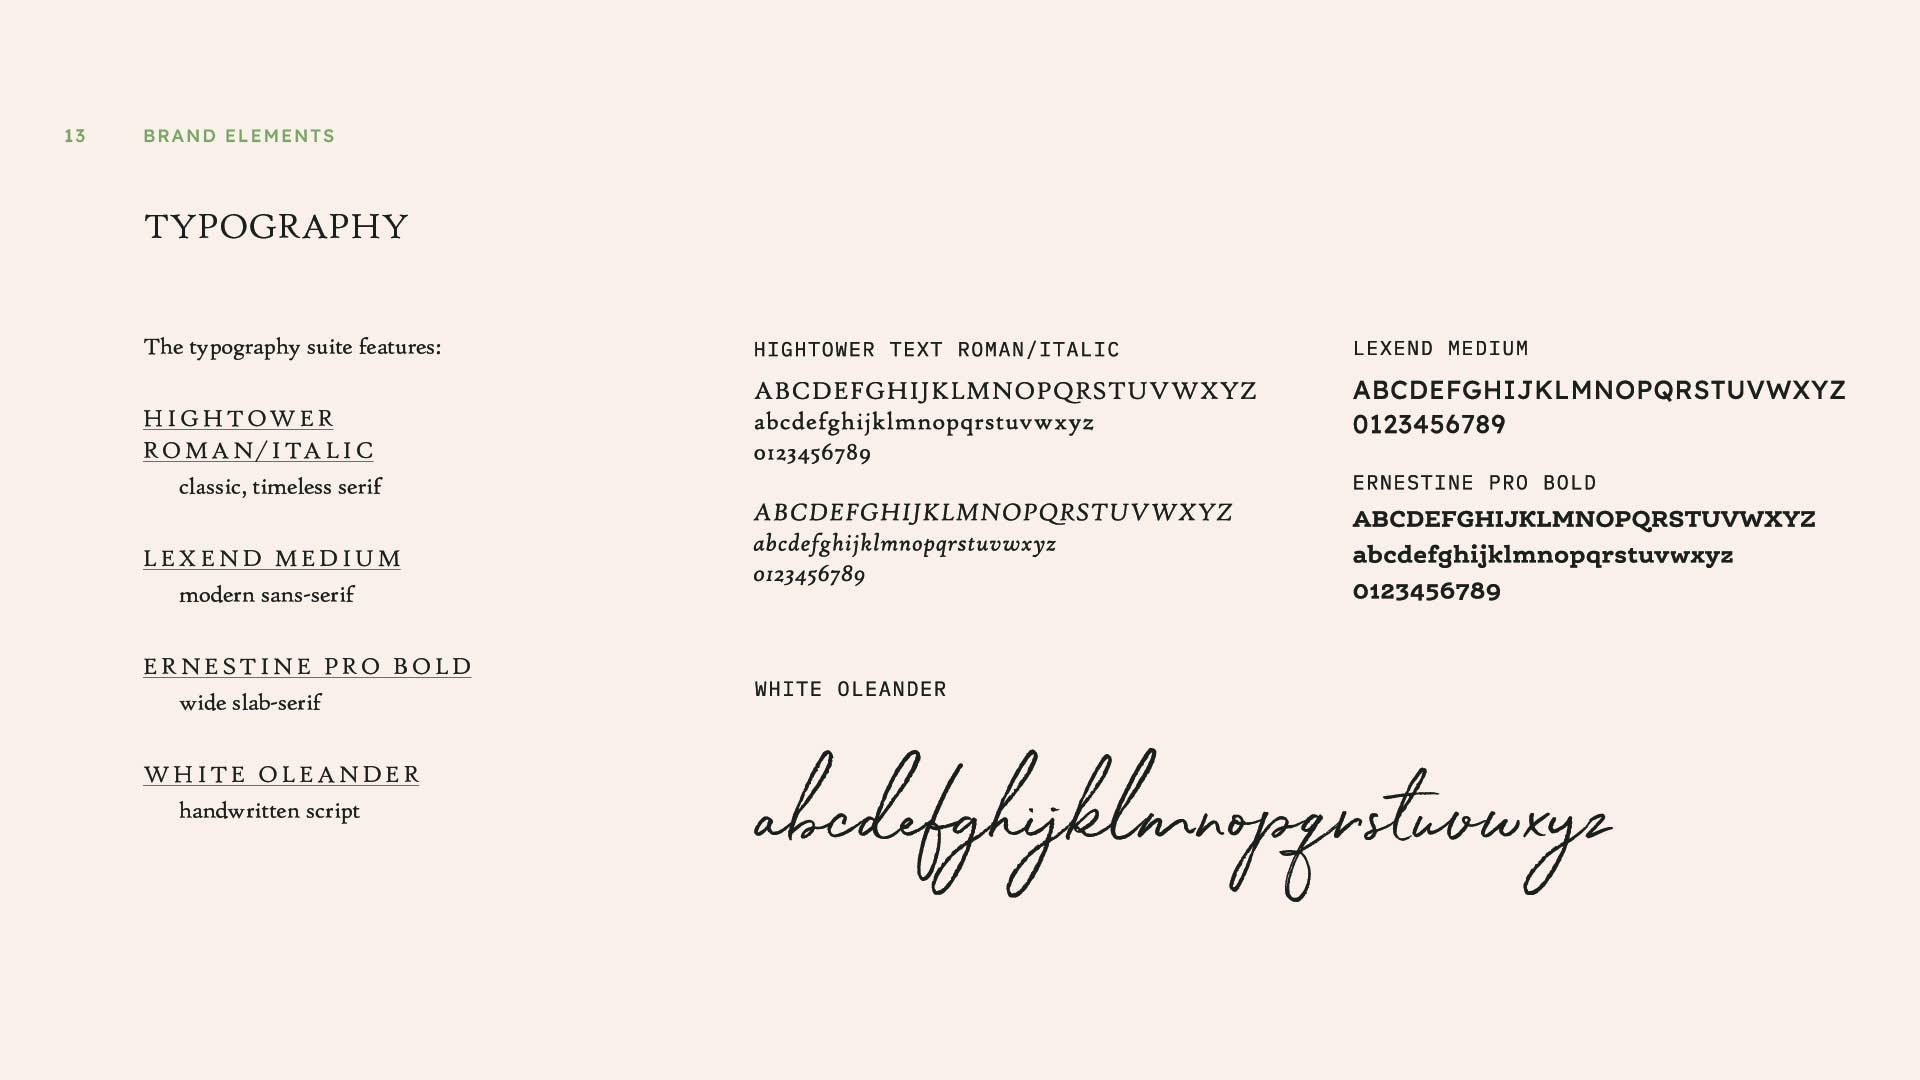 13 BRAND ELEMENTS
TYPOGRAPHY
The typography suite features:
HIGHTOWER
ROMAN/ITALIC
classic, timeless serif
LEXEND MEDIUM
modern sans-serif
ERNESTINE PRO BOLD
wide slab-serif
WHITE OLEANDER
handwritten script
HIGHTOWER TEXT ROMAN/ITALIC
ABCDEFGHIJKLMNOPQRSTUVWXYZ
abcdefghijklmnopqrstuvwxyz
0123456789
ABCDEFGHIJKLMNOPQRSTUVWXYZ
abcdefghijklmnopqrstuvwxyz
0123456789
LEXEND MEDIUM
ABCDEFGHIJKLMNOPQRSTUVWXYZ
0123456789
ERNESTINE PRO BOLD
ABCDEFGHIJKLMNOPQRSTUVWXYZ
abcdefghijklmnopqrstuvwxyz
0123456789
WHITE OLEANDER
abcdefghijklmnopqrstuvwxyz